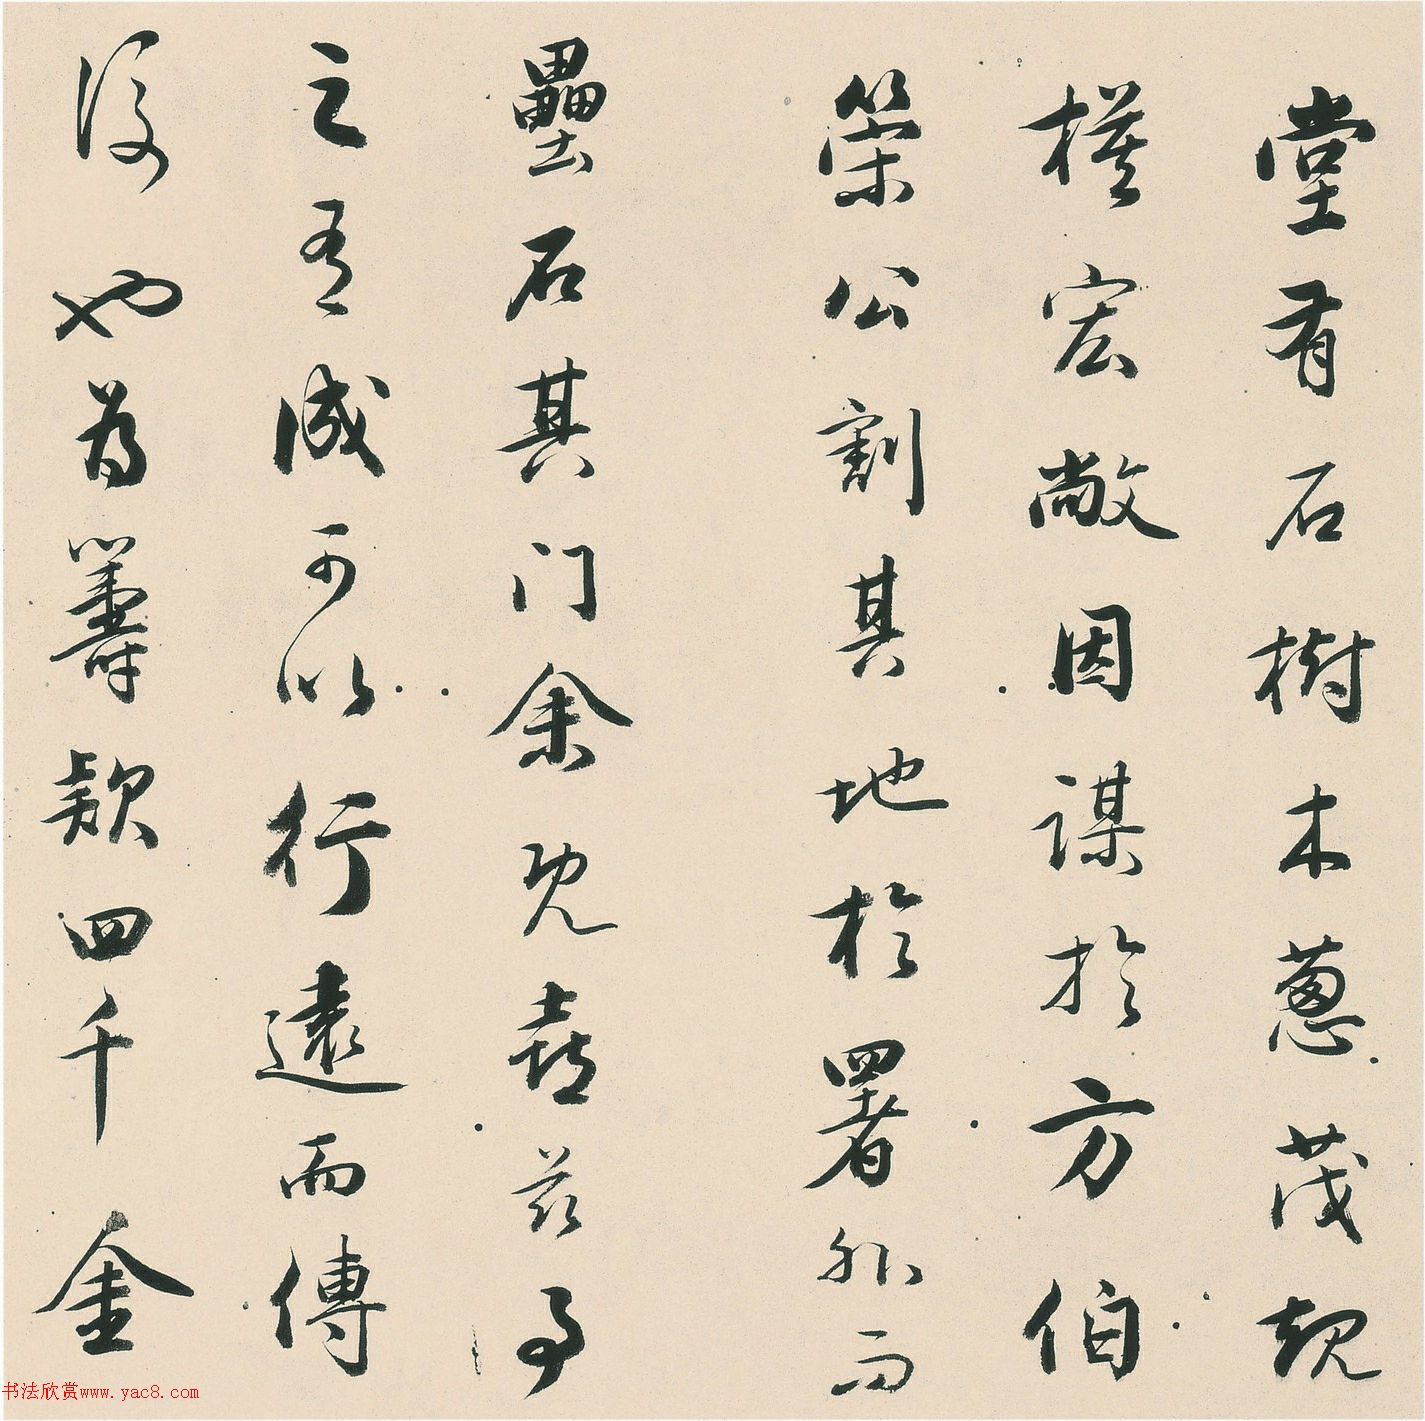 堂有石樹木蔥茂規
模宏敞因謀於方伯
榮公割其地於署外而
壘石其门余既喜茲事
之有成可以行遠而傳
後也為籌款四千金
书法欣赏www.yac8.com